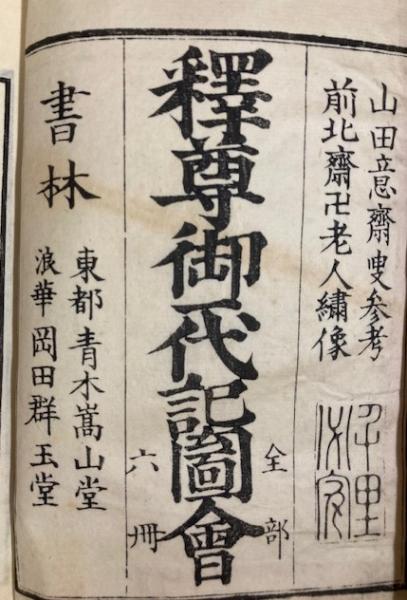 山田意齋叟参考
前北齋卍老人繡像
釋尊御一代記圖會
全部
六冊
書林
東都青木嵩山堂
浪華岡田群玉堂